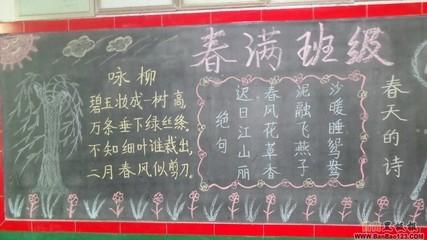 春满班级
咏柳
碧玉妆成一树高,
万条垂下绿丝绦.
不知细叶谁裁出,
二月春风似剪刀.
绝句
迟日江山丽
春风花草香
泥融飞燕子
沙暖睡鸳鸯
春天的诗
www.BanBao123.com